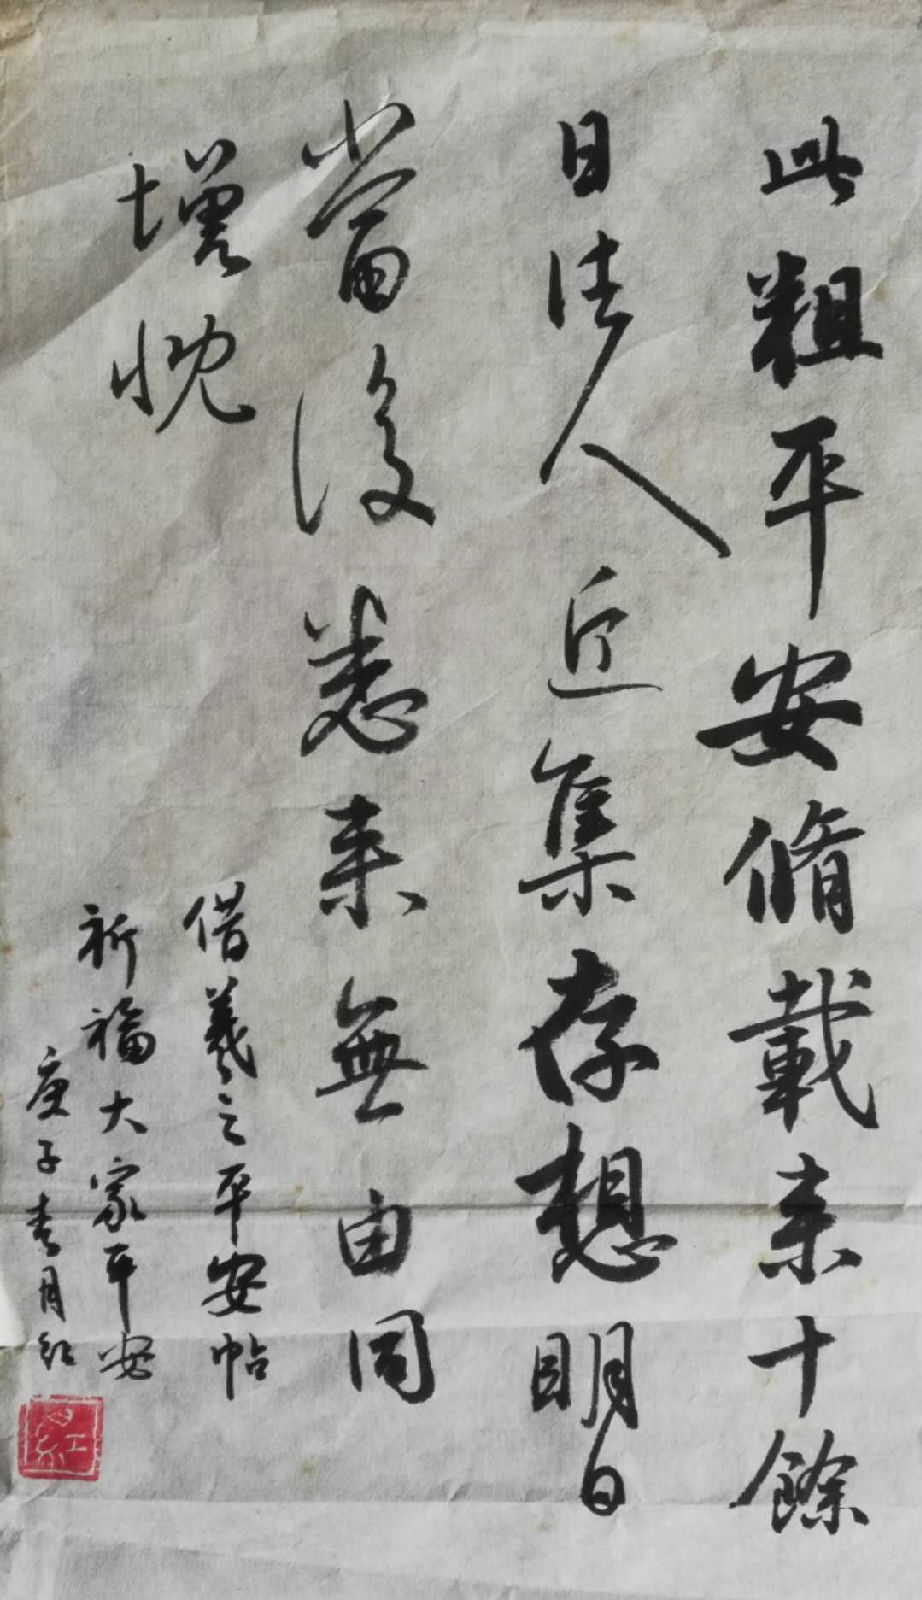 此粗平安脩載来十餘
日諸人近集存想明日
當復悉来無由同
增慨
借羲之平安帖
祈福大家平安
庚子春月红